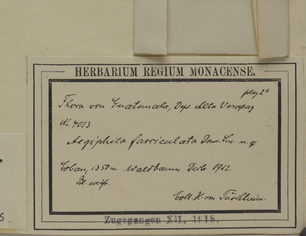 HERBARIUM REGIUM MONACENSE.
Flora von Guatemala, Dep. Alta Verapaz
No 4073
Aegiphila fasciculata Donn. Sm. n. sp
Coban, 1350m Waldbaum Decb 1912
Bl. weiss.
Coll. H. von Türckheim.
Zugegangen XII. 1918.